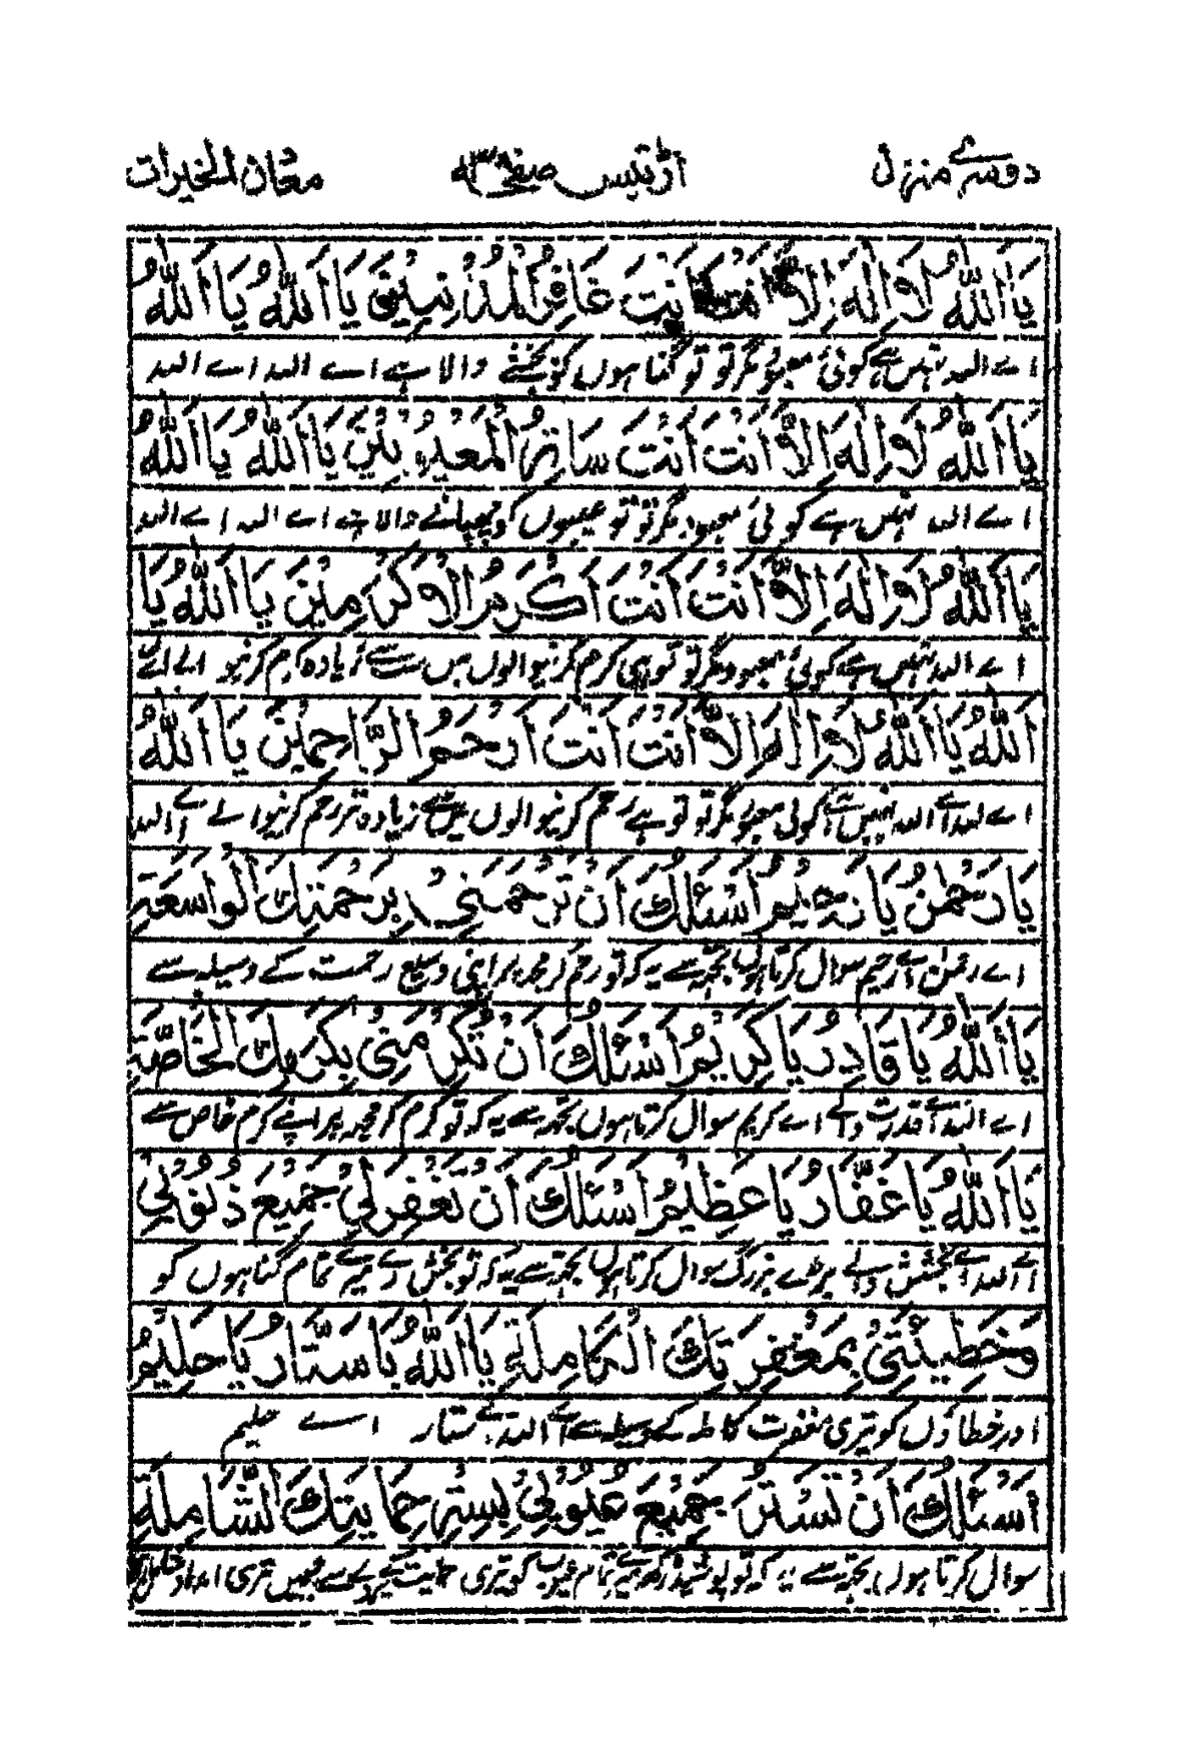 دوسرے منزل اڑتیس صفحہ ۳۸ معدن الخیرات
يَا اَللّٰهُ لَا اِلٰهَ اِلَّا اَنْتَ اَنْتَ غَافِرُ الْمُذْنِبِيْنَ يَا اَللّٰهُ يَا اَللّٰهُ
اے اللہ نہیں ہے کوئی معبود مگر تو تو گناہوں کو بخشنے والا ہے اے اللہ اے اللہ
يَا اَللّٰهُ لَا اِلٰهَ اِلَّا اَنْتَ اَنْتَ سَاتِرُ الْمَعْيُوْبِيْنَ يَا اَللّٰهُ يَا اَللّٰهُ
اے اللہ نہیں ہے کوئی معبود مگر تو تو عیبوں کو چھپانے والا ہے اے اللہ اے اللہ
يَا اَللّٰهُ لَا اِلٰهَ اِلَّا اَنْتَ اَنْتَ اَكْرَمُ الْاَكْرَمِيْنَ يَا اَللّٰهُ يَا
اے اللہ نہیں ہے کوئی معبود مگر تو تو ہی کرم کرنیوالوں میں سے زیادہ کرم کرنیو
اَللّٰهُ يَا اَللّٰهُ لَا اِلٰهَ اِلَّا اَنْتَ اَنْتَ اَرْحَمُ الرَّاحِمِيْنَ يَا اَللّٰهُ
اے اللہ اے اللہ نہیں ہے کوئی معبود مگر تو تو ہے رحم کرنیوالوں میں سے زیادہ تر رحم کرنیوالے اے اللہ
يَا رَحْمٰنُ يَا رَحِيْمُ اَسْئَلُكَ اَنْ تَرْحَمَنِيْ بِرَحْمَتِكَ الْوَاسَعَةِ
اے رحمٰن اے رحیم سوال کرتا ہوں تجھ سے یہ کہ تو رحم کر مجھ پر اپنی وسیع رحمت کے وسیلہ سے
يَا اَللّٰهُ يَا قَادِرُ يَا كَرِيْمُ اَسْئَلُكَ اَنْ تُكْرِمَنِيْ بِكَرَمِكَ الْخَاصَّةِ
اے اللہ اے قدرت والے اے کریم سوال کرتا ہوں تجھ سے یہ کہ تو کرم کر مجھ پر اپنے کرم خاص سے
يَا اَللّٰهُ يَا غَفَّارُ يَا عَظِيْمُ اَسْئَلُكَ اَنْ تَغْفِرَ لِيْ جَمِيْعَ ذُنُوْبِيْ
اے اللہ اے بخشش والے بڑے بزرگ سوال کرتا ہوں تجھ سے یہ کہ تو بخش دے میرے تمام گناہوں کو
وَخَطِيْئَتِيْ بِمَغْفِرَتِكَ الْكَامِلَةِ يَا اَللّٰهُ يَا سَتَّارُ يَا حَلِيْمُ
اور خطاؤں کو تیری مغفرت کاملہ کے وسیلہ سے اے اللہ اے ستار اے حلیم
اَسْئَلُكَ اَنْ تَسْتُرَ جَمِيْعَ عُيُوْبِيْ بِسِتْرِ حِمَايَتِكَ الشَّامِلَةِ
سوال کرتا ہوں تجھ سے یہ کہ تو پوشیدہ رکھ میرے تمام عیوب کو تیری حمایت کے پردے سے